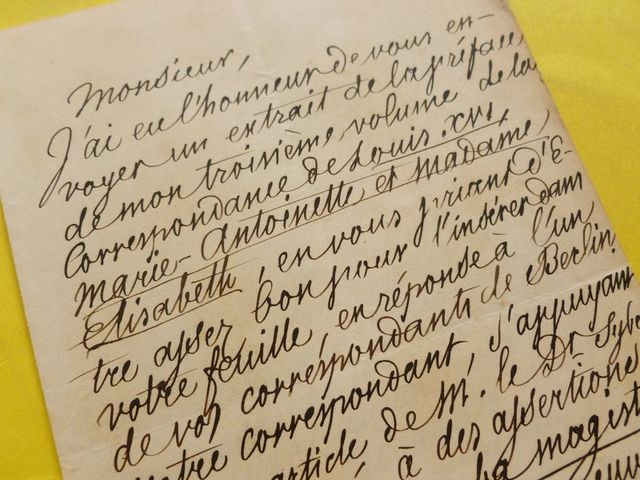 Monsieur,
J'ai eu l'honneur de vous en-
voyer un extrait de la préface
de mon troisième volume de la
Correspondance de Louis XVI,
Marie-Antoinette et Madame
Elisabeth, en vous priant d'ê-
tre assez bon pour l'insérer dans
votre feuille, en réponse à l'un
de vos correspondants de Berlin.
Votre correspondant, s'appuyant
article de M. le Dr Sybe
, à des assertions
la magist